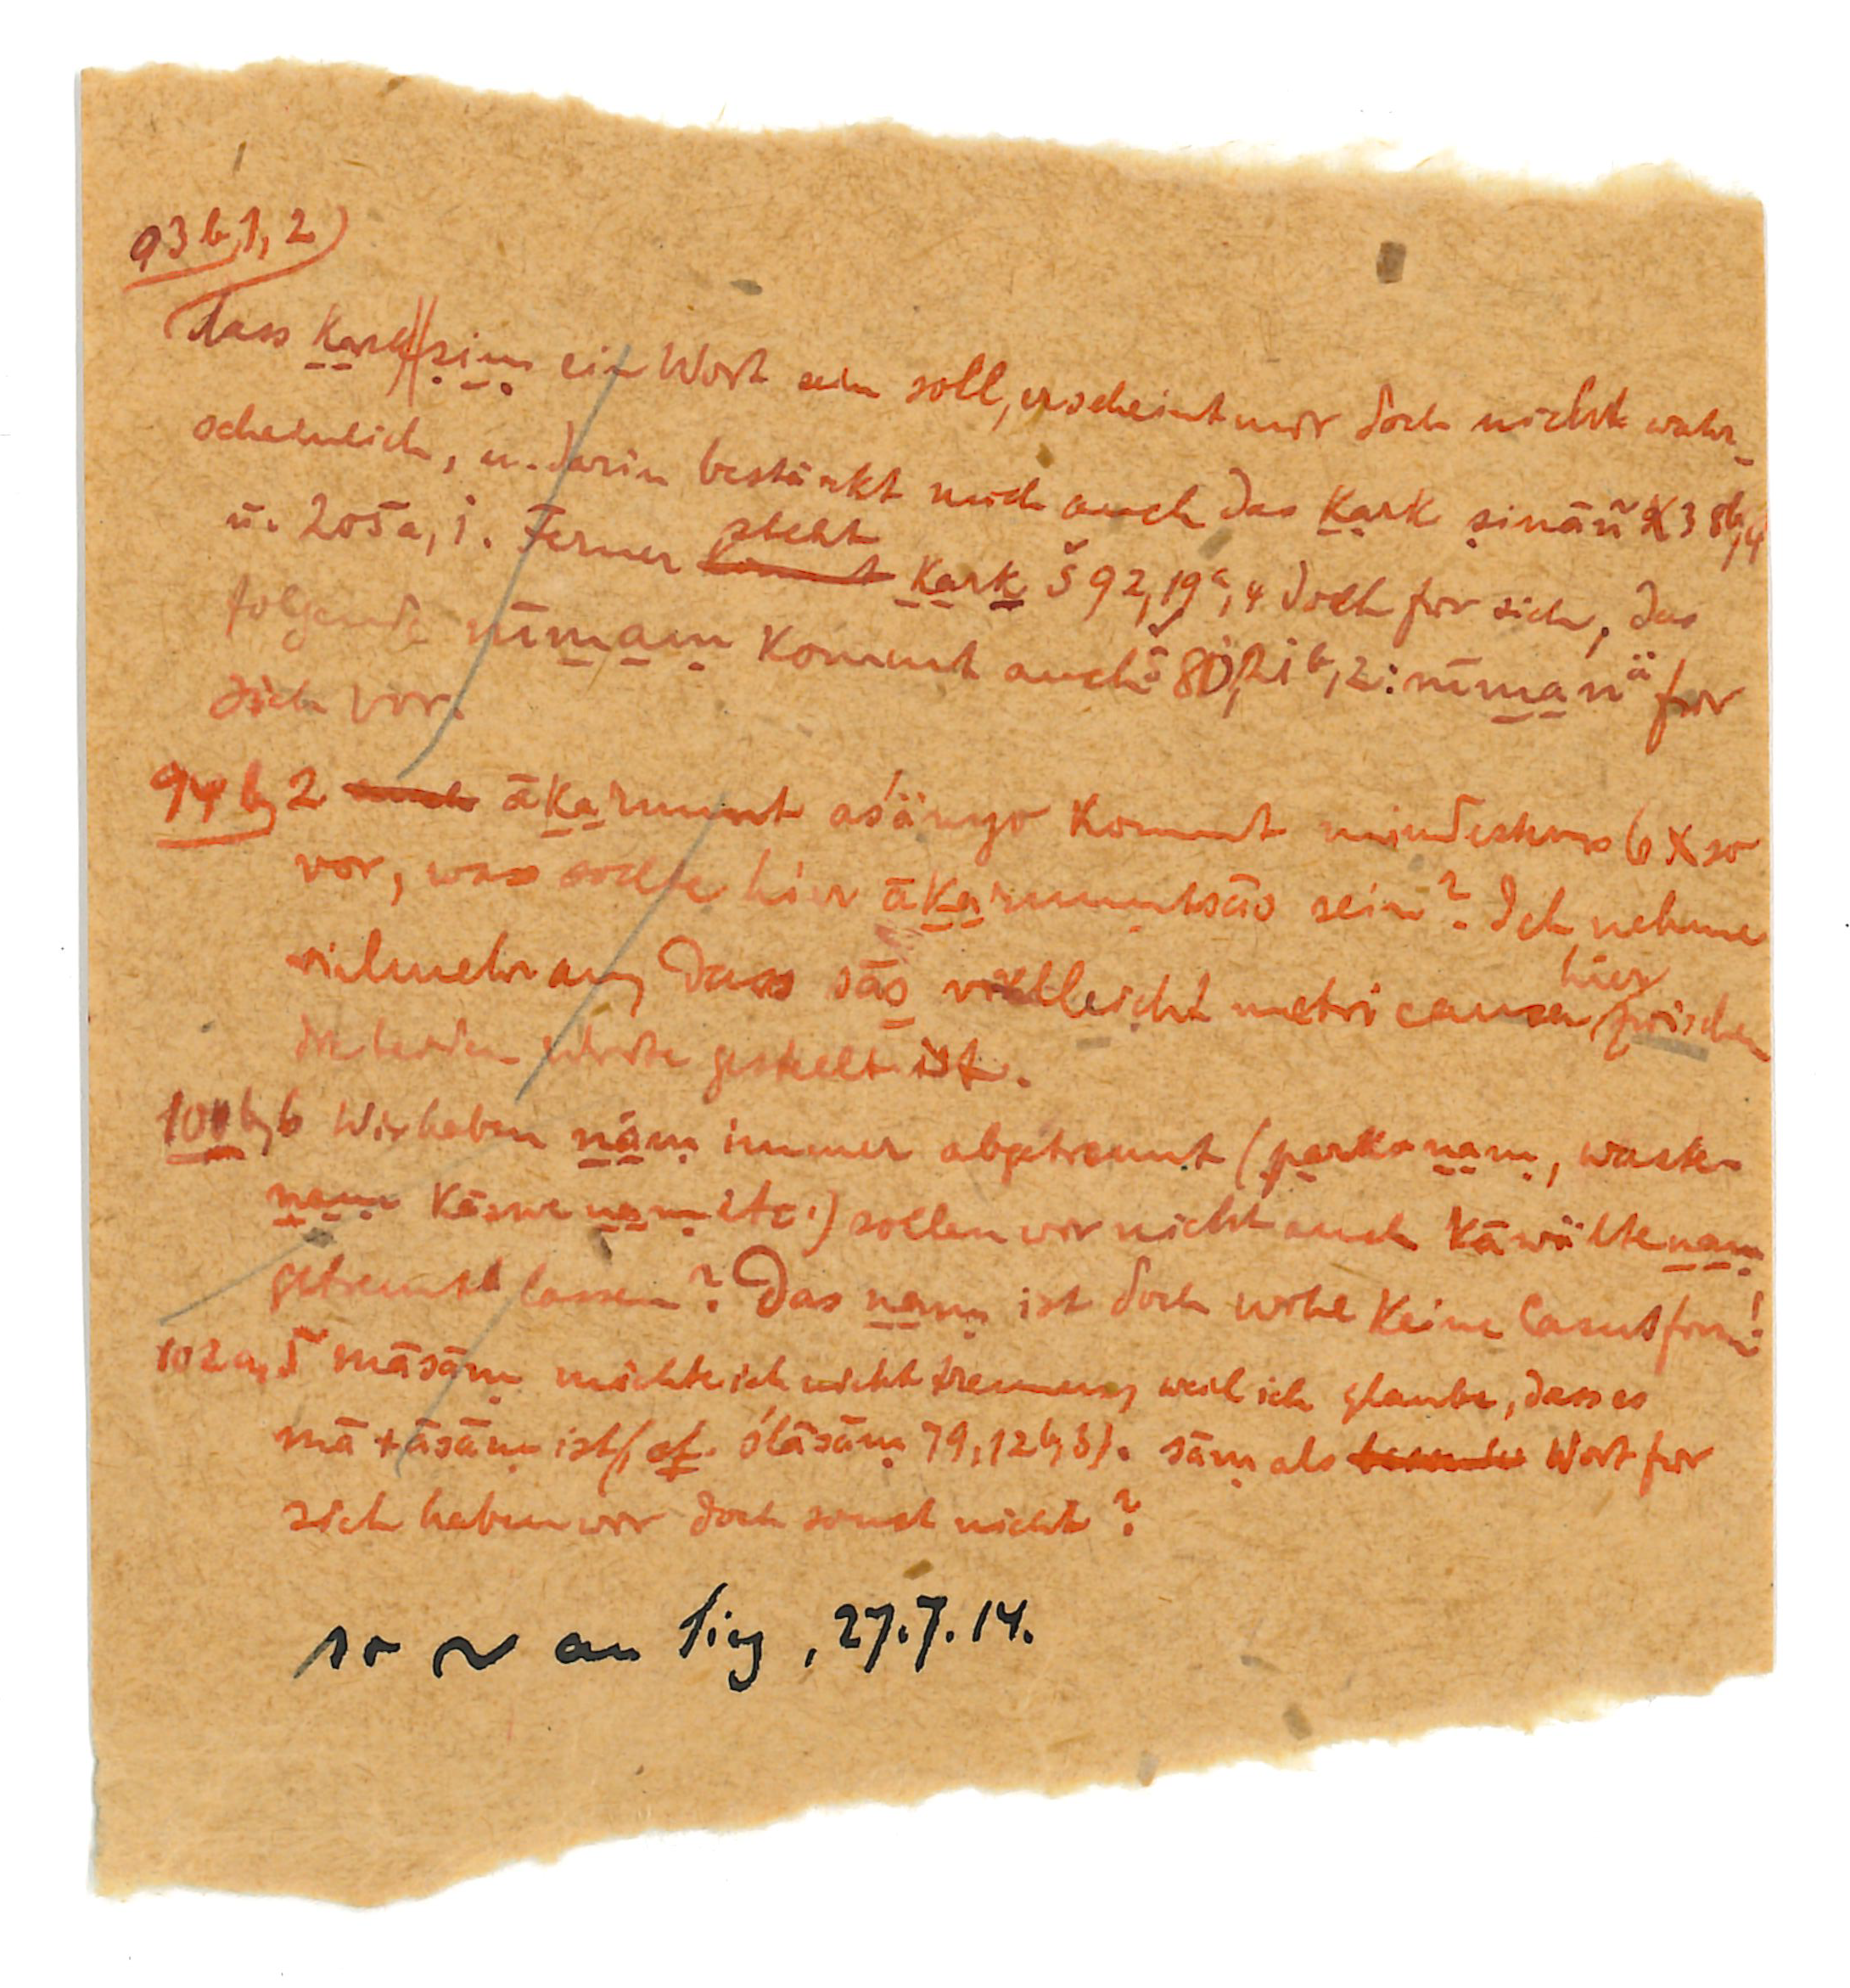 93 b, 1, 2)
dass kark ṣiṃ ein Wort sein soll, erscheint mir doch nicht wahr-
scheinlich, u. darin bestärkt mich auch das kark ṣinā̃ñ X 3 8b, 4
u. 205a, 1. Ferner steht kark Š 92, 19a, 4 doch für sich, das
folgende nīmaṃ kommt auch Š 80, 21b, 2: nīmanä für
sich vor.
94 b, 2 ākarmunt aśäṃyo kommt mindestens 6 X so
vor, was sollte hier ākarmuntsāṣ sein? Ich nehme
vielmehr an, dass sāṣ vielleicht metri causa hier zwischen
die beiden Worte gestellt ist.
101 b, 6 Wir haben näṃ immer abgetrennt (parka naṃ, waska
naṃ kāswe naṃ etc.) sollen wir nicht auch kāwälte naṃ
getrennt lassen? Das naṃ ist doch wohl keine Casusform!
102 a, 5 māsāṃ möchte ich nicht trennen, weil ich glaube, dass es
mā + āsāṃ ist (cf. ślāsāṃ 79, 12 b, 3). sāṃ als Wort für
sich haben wir doch sonst nicht?
so ~ an Sieg, 27.7.14.